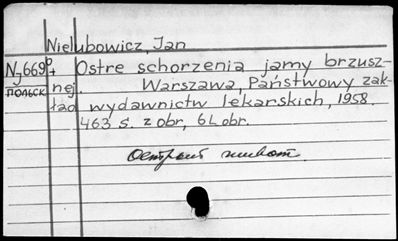 Nielubowicz, Jan
N 669 Ostre schorzenia jamy brzusz-
польск nej. Warszawa, Państwowy zak-
ład wydawnictw lekarskich, 1958.
463 s. z obr, 6 L obr.
Острый живот